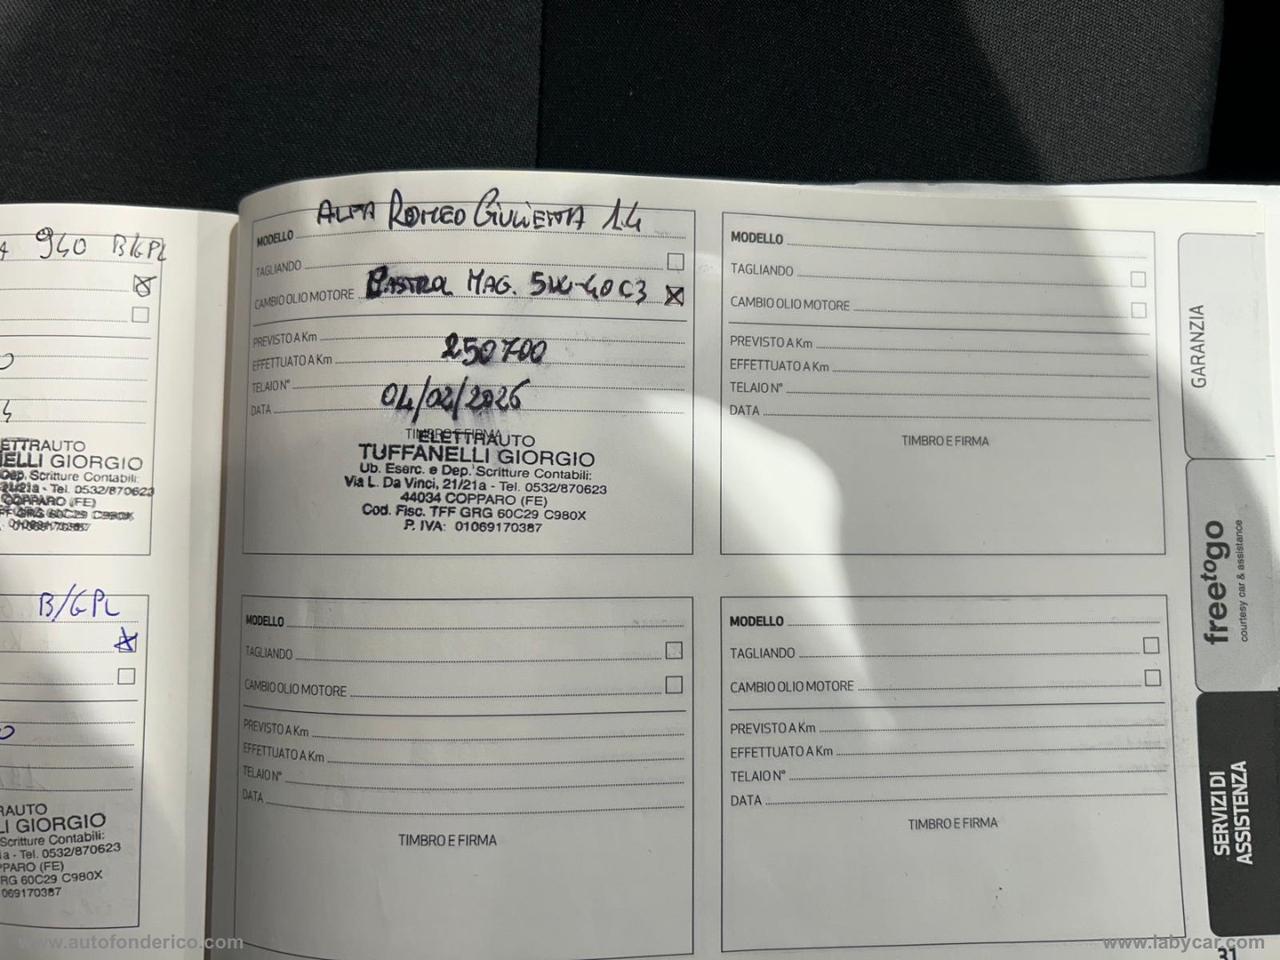 940 B/GPL
ELETTRAUTO
TUFFANELLI GIORGIO
Dep. Scritture Contabili:
21/21a - Tel. 0532/870623
COPPARO (FE)
GRG 60C29 C980X
01069170387
B/GPL
RAUTO
LI GIORGIO
Scritture Contabili:
1a - Tel. 0532/870623
PPARO (FE)
RG 60C29 C980X
069170387
MODELLO ALFA ROMEO GIULIETTA 1.4
TAGLIANDO
CAMBIO OLIO MOTORE CASTROL MAG. 5W-40 C3
PREVISTO A Km
EFFETTUATO A Km 250700
TELAIO N°
DATA 04/02/2026
TIMBRO E FIRMA
ELETTRAUTO
TUFFANELLI GIORGIO
Ub. Eserc. e Dep. Scritture Contabili:
Via L. Da Vinci, 21/21a - Tel. 0532/870623
44034 COPPARO (FE)
Cod. Fisc. TFF GRG 60C29 C980X
P. IVA: 01069170387
MODELLO
TAGLIANDO
CAMBIO OLIO MOTORE
PREVISTO A Km
EFFETTUATO A Km
TELAIO N°
DATA
TIMBRO E FIRMA
MODELLO
TAGLIANDO
CAMBIO OLIO MOTORE
PREVISTO A Km
EFFETTUATO A Km
TELAIO N°
DATA
TIMBRO E FIRMA
MODELLO
TAGLIANDO
CAMBIO OLIO MOTORE
PREVISTO A Km
EFFETTUATO A Km
TELAIO N°
DATA
TIMBRO E FIRMA
GARANZIA
freetogo
courtesy car & assistance
SERVIZI DI
ASSISTENZA
31
www.autofonderico.com
www.labycar.com